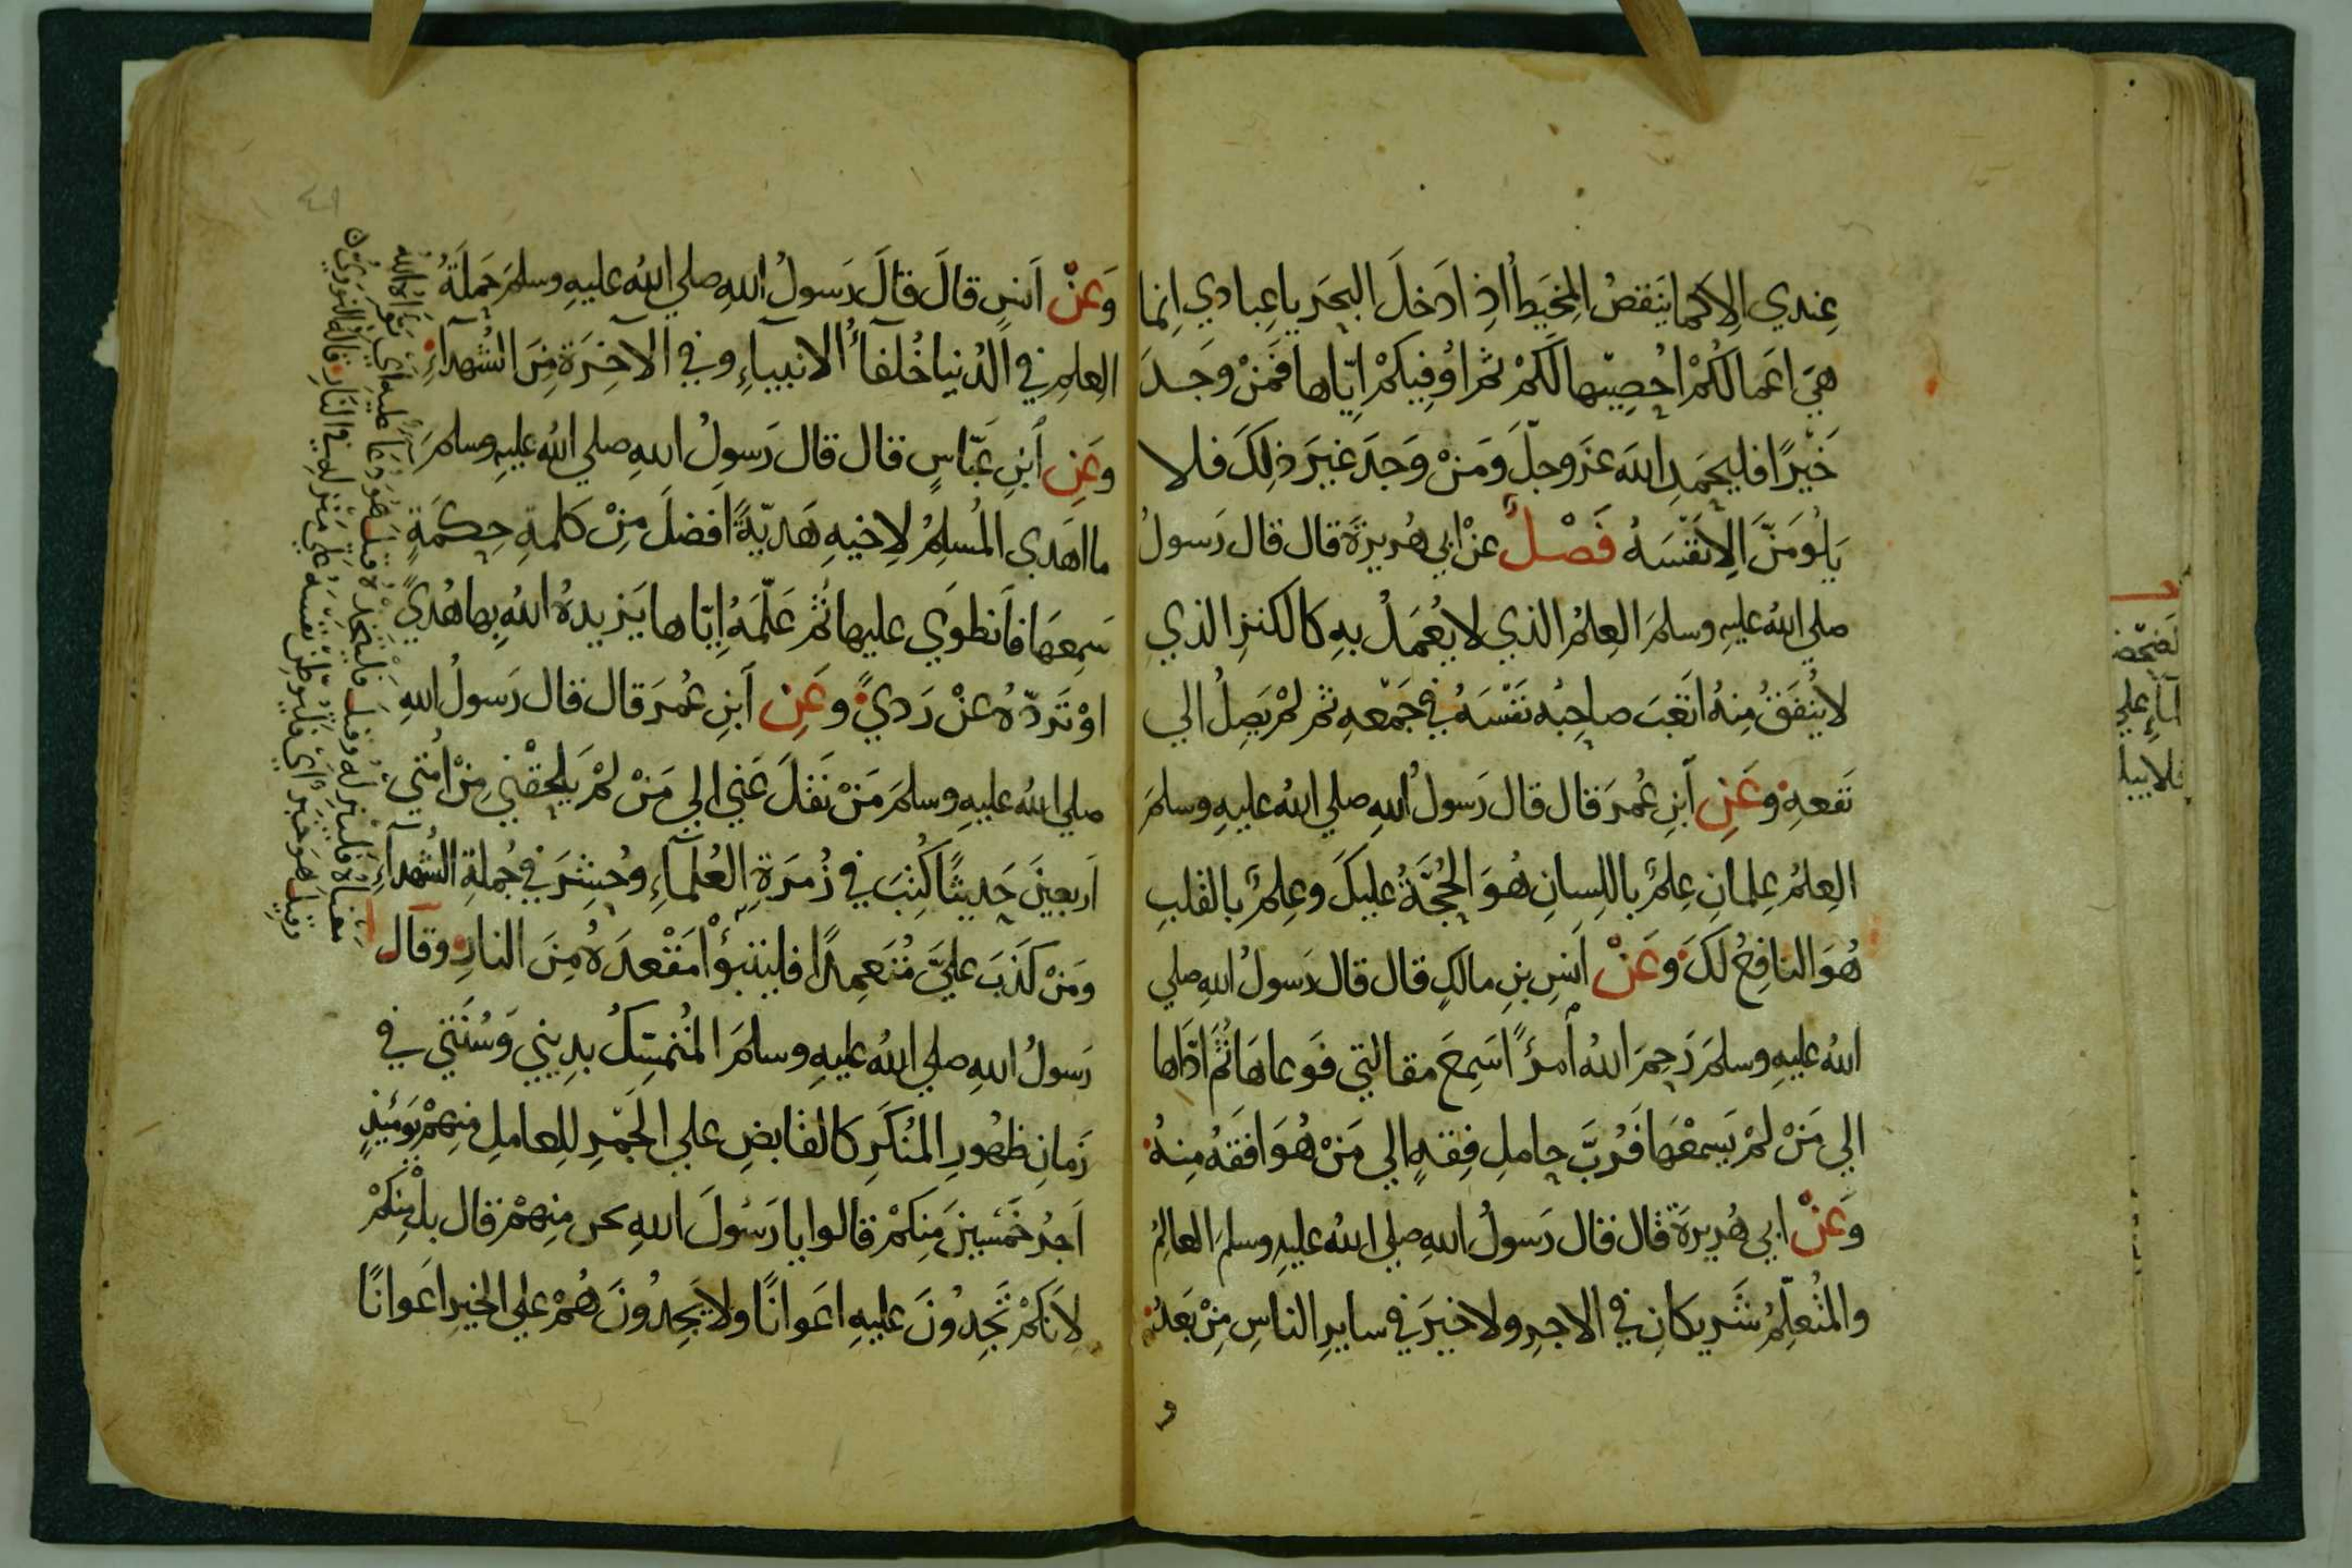 عِندي الا كما يَنقصُ المِخيَط اذِا ادَخلَ البحَر يا عِبادي اِنما
هيَ اعَمالكُمْ احُصِيها لَكمْ ثم اوُفيكمْ اِيّاها فمَنْ وَجدَ
خَيْرًا فليحمَدِ اللهَ عزوجلّ وَمَنْ وَجدَ غيَر ذلِكَ فلا
يَلوُمَنَّ الِا نَفْسَهُ فَصْلٌ عنْ ابي هُريرَةَ قال قال رَسولُ
صلي اللهُ عليهِ وسلمَ العِلمُ الذي لا يُعْمَلُ بهِ كالكنزِ الذي
لا ينُفَقُ مِنهُ اتَعَبَ صاحِبُه نَفْسَهُ في جَمْعهِ ثم لمْ يَصِلُ الي
نَفعهِ وعَنِ اَبنِ عُمرَ قال قال رَسولُ اللهِ صلي اللهُ عليهِ وسلمَ
العِلمُ عِلمانِ عِلمٌ باللِسانِ هُوَ الحُجَّةُ عليكَ وعِلمٌ بالقلبِ
هُوَ النافِعُ لكَ وعَنْ اَنسِ بنِ مالكٍ قال قال رَسولُ اللهِ صلي
اللهُ عليهِ وسلمَ رَحِمَ اللهُ اَمرَءًا سَمِعَ مقالتي فوَعاهَا ثُمَّ ادَّاها
الي مَنْ لمْ يَسمعْهَا فَرُبَّ حاملِ فِقهٍ الي مَنْ هُوَ افقهُ مِنهُ
وعَنْ ابي هُريرةَ قال قال رَسولُ اللهِ صلي اللهُ عليهِ وسلمَ العالِمُ
والمُتعلِّمُ شَريكانِ في الاجرِ ولا خيرَ في سايرِ الناسِ مِنْ بَعدُ
و
وَعَنْ اَنسٍ قالَ قالَ رَسولُ اللهِ صلي اللهُ عليهِ وسلمَ حَمَلَةُ
العِلمِ في الدُنيا خُلفآءُ الانبياءِ وفي الآخِرَةِ مِنَ الشُهدآءِ
وعَنِ اَبنِ عَبّاسٍ قال قال رَسولُ اللهِ صلي اللهُ عليهِ وسلمَ
ما اهَدي المُسلِمُ لاِخيهِ هَديّةً افضلَ مِنْ كلمةِ حِكمَةٍ
سَمِعَهَا فاَنطوَي عليها ثُمَّ عَلّمَهُ اِيّاها يَزيدهُ اللهُ بِها هُديً
اوْ تَردّهُ عنْ رَديً وعَنِ اَبنِ عُمَرَ قال قال رَسولُ اللهِ
صلي اللهُ عليهِ وسلمَ مَنْ نقَلَ عَني الي مَنْ لمْ يَلحقْني مِنْ امُتي
اَربعينَ حَديثًا كُتِبَ في زُمرَةِ العُلمآءِ وحُشِرَ في جُملةِ الشُهدآءِ
ومَنْ كذَبَ عليَّ مُتَعمِدًا فليتبؤْا مَقْعدَهُ مِنَ النارِ وقال
رَسولُ اللهِ صلي اللهُ عليهِ وسلمَ المُتمسِّكُ بدِيني وَسُنَتي في
زَمانِ ظهُورِ المُنكَرِ كالقابضِ علي الجَمْرِ لِلعاملِ مِنهمْ يَومَئِذٍ
اَجرُ خَمسينَ مِنكمْ قالوا يا رَسُولَ اللهِ منهمْ قال بلْ مِنكمْ
لاِنَكمْ تَجِدوُنَ عليهِ اعَوانًا ولا يَجِدوُنَ هُمْ علي الخيرِ اعَوانًا